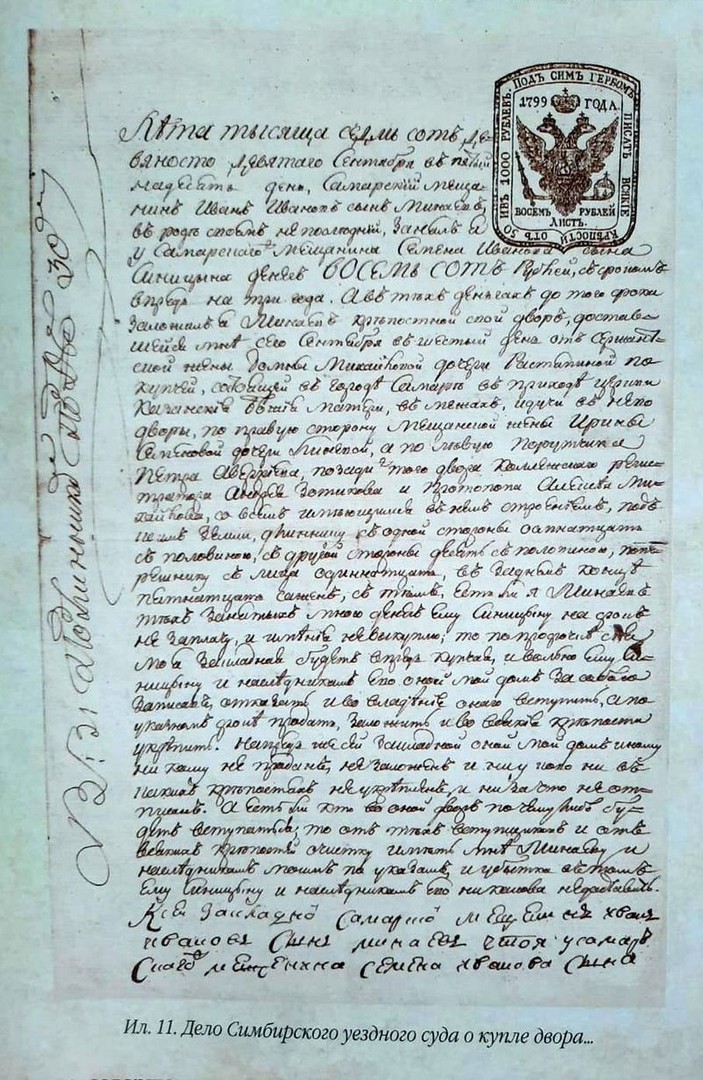 ПОДЪ СИМЪ ГЕРБОМЪ ПИСАТЬ ВСЯКIЕ КРѢПОСТИ ОТЪ 50 ИВЪ 1000 РУБЛЕВЪ.
1799 ГОДА.
ВОСЕМЬ РУБЛЕЙ
ЛИСТЪ.
Лѣта тысяща седмь сотъ де
вяносто девятаго Сентября въ пятый
надесять день, Самарскiй меща
нинъ Иванъ Ивановъ сынъ Минаевъ,
въ родѣ своемъ не послѣднiй, занялъ я
у Самарскаго мещанина Семена Иванова сына
Синицына денегъ ВОСЕМЬ СОТЪ рублей, съ срокомъ
впредь на три года. А въ тѣхъ деньгахъ до того срока
заложилъ я Минаевъ крѣпостной свой дворъ, достав
шейся мнѣ сего Сентября въ шестый день отъ
жены Домны Михайловой дочери по
купкѣй, состоящей въ городѣ Самарѣ въ приходѣ церкви
Казанскiя матери, въ межахъ, идучи въ него
дворъ, по правую сторону мещанской жены Ирины
Семеновой дочери а по лѣвую Порутчика
Петра позади того двора Коллежскаго регис
тратора Андрея и Протопопа Алексея Ми
хайлова, со всемъ имѣющимся въ немъ строенiемъ, подъ
нимъ земли, длиннику съ одной стороны
съ половиною, съ другой стороны десять съ половиною, попе
решнику съ лица одиннатцать, въ заднемъ концѣ
пятнатцать саженъ, съ тѣмъ, естьли я Минаевъ
тѣхъ занятыхъ мною денегъ ему Синицыну на срокъ
не заплачу, и имѣнiе не выкуплю, то по прозрочкѣ сiя
моя закладная будетъ впредь купчая, и вольно ему Си
ницыну и наслѣдникамъ его оной мой домъ за собою
записать, отказать и во владѣнiе онаго вступить, а по
указномъ срокѣ продать, заложить и во всякiе крѣпости
укрѣпить. Напредь же сей закладной оной мой домъ иному
ни кому не проданъ, не заложенъ и ни у кого ни въ
какихъ крѣпостяхъ не укрѣпленъ, и ни за что не от
писанъ. А естьли кто во оной дворъ по чему либо бу
детъ вступаться, то отъ тѣхъ вступщиковъ и отъ
всякихъ крѣпостей очистку имѣть мнѣ Минаеву и
наслѣдникамъ моимъ по указамъ, и убытка въ томъ
ему Синицыну и наслѣдникамъ его никакова недоставить.
Ксей закладной Самарской мещенинъ Иванъ
Ивановъ сынъ Минаевъ что я у Самар
скаго мещенина Семена Иванова сына
Ил. 11. Дело Симбирского уездного суда о купле двора...